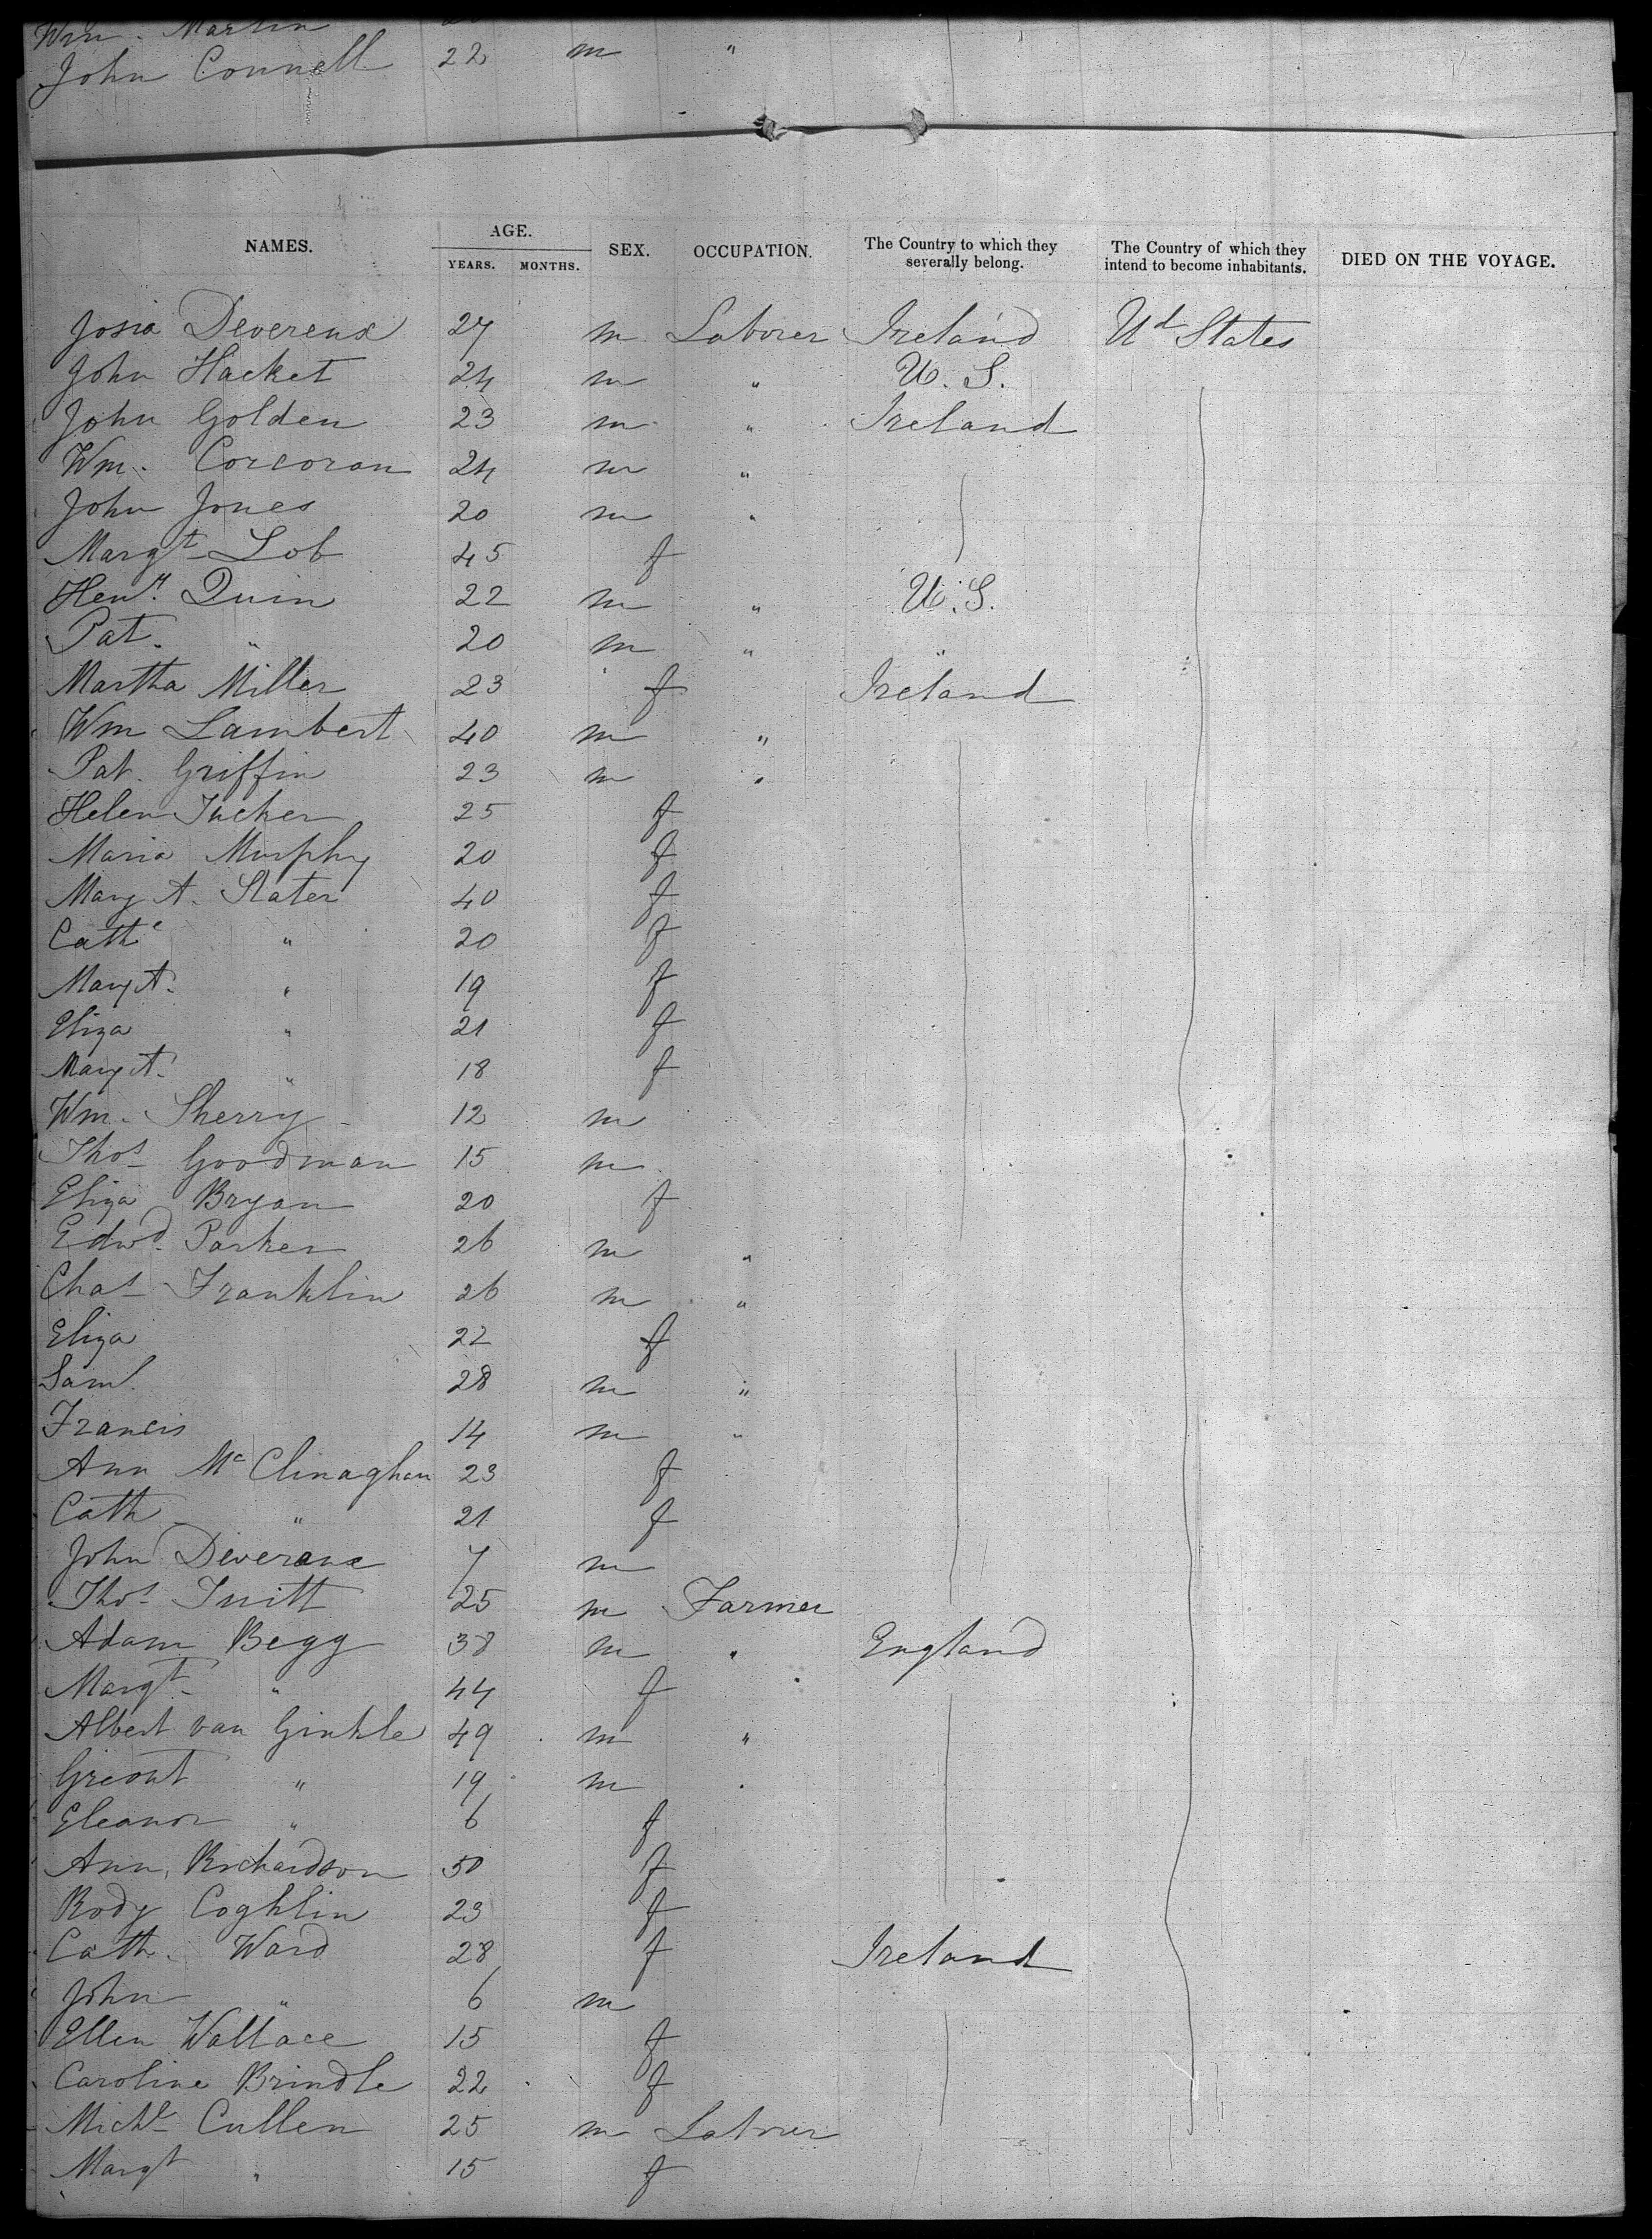 Wm. Martin
John Connell 22 m "
NAMES. AGE. YEARS. MONTHS. SEX. OCCUPATION. The Country to which they severally belong. The Country of which they intend to become inhabitants. DIED ON THE VOYAGE.
Josia Devereux 27 m Laborer Ireland Ud States
John Hacket 24 m " U. S.
John Golden 23 m " Ireland
Wm. Corcoran 24 m "
John Jones 20 m "
Margt Lob 45 f
Heny. Quin 22 m " U. S.
Pat. " 20 m " "
Martha Miller 23 f Ireland
Wm Lambert 40 m "
Pat. Griffin 23 m "
Helen Tucker 25 f
Maria Murphy 20 f
Mary A. Slater 40 f
Cathe " 20 f
Mary A. " 19 f
Eliza " 21 f
Mary A. " 18 f
Wm. Sherry 12 m
Thos Goodman 15 m
Eliza Bryan 20 f
Edwd. Parker 26 m "
Chas Franklin 26 m "
Eliza 22 f
Saml. 28 m "
Francis 14 m "
Ann McClinaghan 23 f
Cath " 21 f
John Devereux 7 m
Thos Tuitt 25 m Farmer
Adam Begg 38 m " England
Margt " 44 f
Albert van Ginkle 49 m "
Greout " 19 m "
Eleanor " 6 f
Ann Richardson 50 f
Rody Coghlin 23 f
Cath. Ward 28 f Ireland
John " 6 m
Ellen Wallace 15 f
Caroline Brindle 22 f
Michl Cullen 25 m Laborer
Margt " 15 f